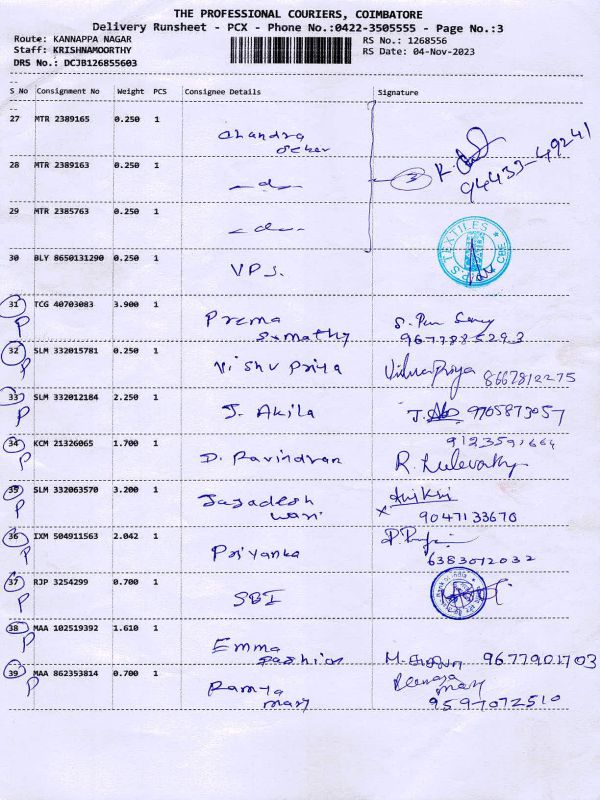 THE PROFESSIONAL COURIERS, COIMBATORE
Delivery Runsheet - PCX - Phone No.:0422-3505555 - Page No.:3
Route: KANNAPPA NAGAR
RS No.: 1268556
Staff: KRISHNAMOORTHY
RS Date: 04-Nov-2023
DRS No.: DCJB126855603
S No Consignment No Weight PCS Consignee Details Signature
27 MTR 2389165 0.250 1 Chandra
Seker
28 MTR 2389163 0.250 1 -d- 3 K. 94433-49241
29 MTR 2385763 0.250 1 -d-
30 BLY 8650131290 0.250 1 V.P.S. TEXTILES CBE
31 TCG 40703083 3.900 1 Prema S.
P sumathy 9677885293
32 SLM 332015781 0.250 1 Vishu Priya VishnuPriya 8667812275
P
33 SLM 332012184 2.250 1 J. Akila J. 9705873057
P
34 KCM 21326065 1.700 1 D. Ravindran 9123591664
P R.
35 SLM 332063570 3.200 1 Jagadesh
P wari x 9047133670
36 IXM 504911563 2.042 1 Priyanka
P 6383072032
37 RJP 3254299 0.700 1 SBI
P
38 MAA 102519392 1.610 1 Emma
P Fashion M. 9677901703
39 MAA 862353814 0.700 1 Ramya
P mary mary 9597072510